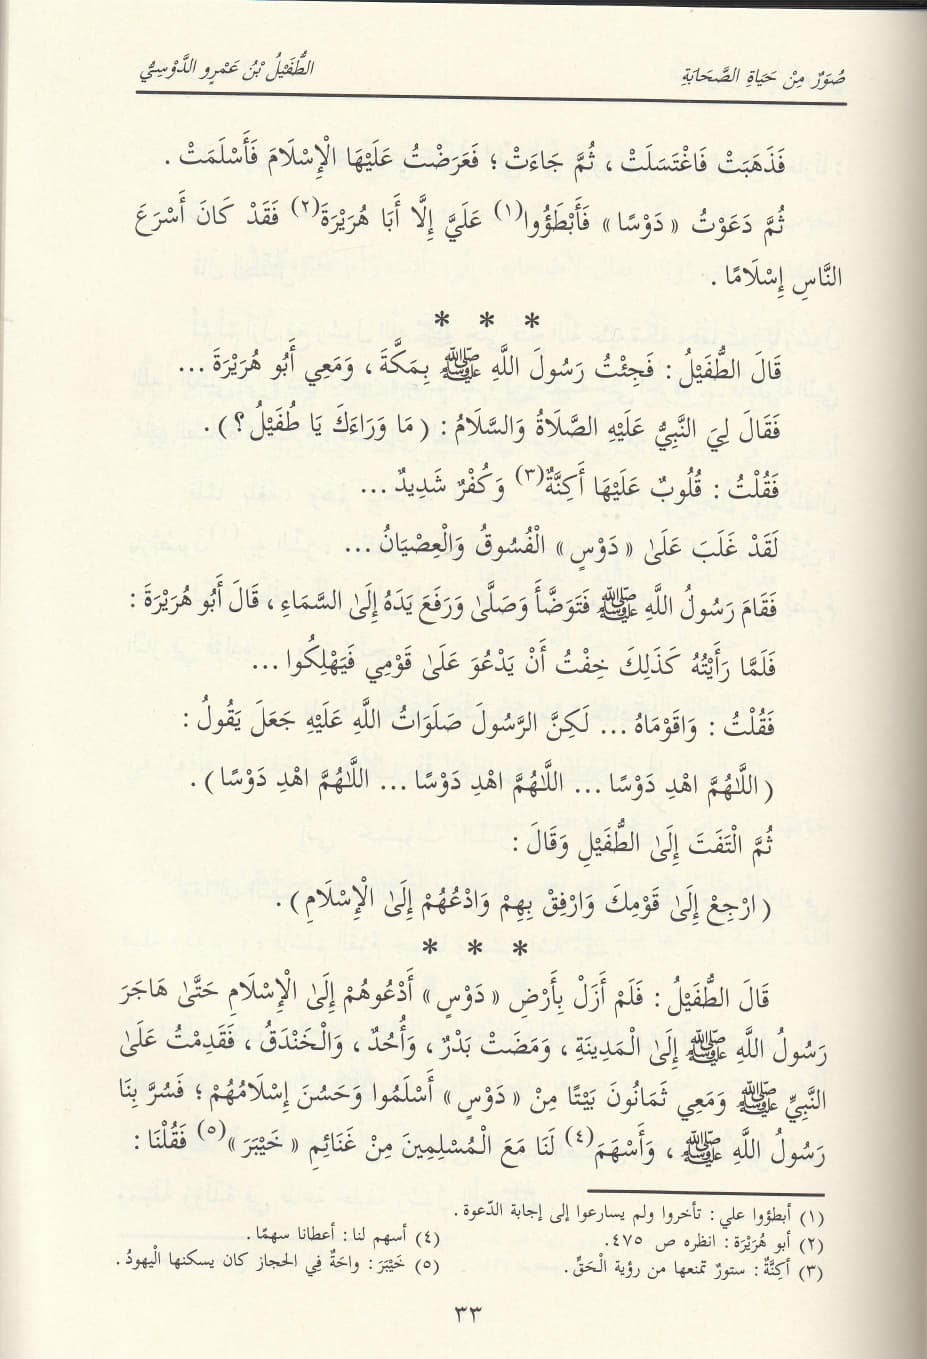 صُوَرٌ مِنْ حَيَاةِ الصَّحَابَةِ
الطُّفَيْلُ بْنُ عَمْرٍو الدَّوْسِيُّ
فَذَهَبَتْ فَاغْتَسَلَتْ ، ثُمَّ جَاءَتْ ؛ فَعَرَضْتُ عَلَيْهَا الْإِسْلَامَ فَأَسْلَمَتْ .
ثُمَّ دَعَوْتُ « دَوْسًا » فَأَبْطَؤُوا(١) عَلَيَّ إِلَّا أَبَا هُرَيْرَةَ(٢) فَقَدْ كَانَ أَسْرَعَ
النَّاسِ إِسْلَامًا .
* * *
قَالَ الطُّفَيْلُ : فَجِئْتُ رَسُولَ اللَّهِ ﷺ بِمَكَّةَ ، وَمَعِي أَبُو هُرَيْرَةَ ...
فَقَالَ لِيَ النَّبِيُّ عَلَيْهِ الصَّلَاةُ وَالسَّلَامُ : ( مَا وَرَاءَكَ يَا طُفَيْلُ ؟ ) .
فَقُلْتُ : قُلُوبٌ عَلَيْهَا أَكِنَّةٌ(٣) وَكُفْرٌ شَدِيدٌ ...
لَقَدْ غَلَبَ عَلَىٰ « دَوْسٍ » الْفُسُوقُ وَالْعِصْيَانُ ...
فَقَامَ رَسُولُ اللَّهِ ﷺ فَتَوَضَّأَ وَصَلَّىٰ وَرَفَعَ يَدَهُ إِلَىٰ السَّمَاءِ ، قَالَ أَبُو هُرَيْرَةَ :
فَلَمَّا رَأَيْتُهُ كَذَلِكَ خِفْتُ أَنْ يَدْعُوَ عَلَىٰ قَوْمِي فَيَهْلِكُوا ...
فَقُلْتُ : وَاقَوْمَاهُ ... لَكِنَّ الرَّسُولَ صَلَوَاتُ اللَّهِ عَلَيْهِ جَعَلَ يَقُولُ :
( اللَّـٰهُمَّ اهْدِ دَوْسًا ... اللَّـٰهُمَّ اهْدِ دَوْسًا ... اللَّـٰهُمَّ اهْدِ دَوْسًا ) .
ثُمَّ الْتَفَتَ إِلَىٰ الطُّفَيْلِ وَقَالَ :
( ارْجِعْ إِلَىٰ قَوْمِكَ وَارْفِقْ بِهِمْ وَادْعُهُمْ إِلَىٰ الْإِسْلَامِ ) .
* * *
قَالَ الطُّفَيْلُ : فَلَمْ أَزَلْ بِأَرْضِ « دَوْسٍ » أَدْعُوهُمْ إِلَىٰ الْإِسْلَامِ حَتَّىٰ هَاجَرَ
رَسُولُ اللَّهِ ﷺ إِلَىٰ الْمَدِينَةِ ، وَمَضَتْ بَدْرٌ ، وَأُحُدٌ ، وَالْخَنْدَقُ ، فَقَدِمْتُ عَلَىٰ
النَّبِيِّ ﷺ وَمَعِي ثَمَانُونَ بَيْتًا مِنْ « دَوْسٍ » أَسْلَمُوا وَحَسُنَ إِسْلَامُهُمْ ؛ فَسُرَّ بِنَا
رَسُولُ اللَّهِ ﷺ ، وَأَسْهَمَ(٤) لَنَا مَعَ الْمُسْلِمِينَ مِنْ غَنَائِمِ « خَيْبَرَ »(٥) فَقُلْنَا :
(١) أبطؤوا علي : تأخروا ولم يسارعوا إلى إجابة الدّعوة .
(٢) أبو هُرَيْرَة : انظره ص ٤٧٥.
(٣) أكِنَّةٌ : ستورٌ تمنعها من رؤية الْحَقِّ .
(٤) أسهم لنا : أعطانا سهمًا .
(٥) خَيْبَرَ : واحَةٌ فِي الحجاز كان يسكنها الْيهودُ .
٣٣